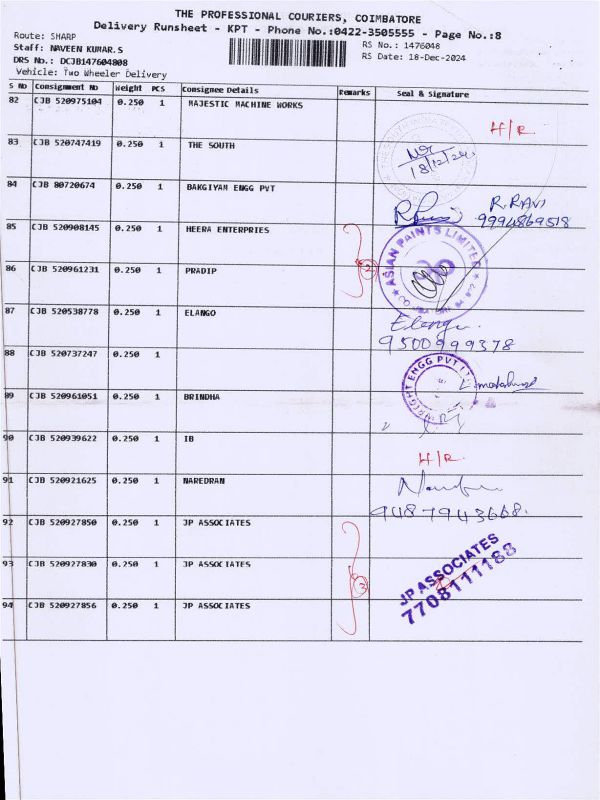 THE PROFESSIONAL COURIERS, COIMBATORE
Delivery Runsheet - KPT - Phone No.:0422-3505555 - Page No.:8
Route: SHARP
RS No.: 1476048
Staff: NAVEEN KUMAR.S
RS Date: 18-Dec-2024
DRS No.: DCJB147604808
Vehicle: Two Wheeler Delivery
S No Consignment No Weight PCS Consignee Details Remarks Seal & Signature
82 CJB 520975104 0.250 1 MAJESTIC MACHINE WORKS
H/R
83 CJB 520747419 0.250 1 THE SOUTH
18/12/24
84 CJB 80720674 0.250 1 BAKGIYAM ENGG PVT
R.RAVI
9994869518
85 CJB 520908145 0.250 1 HEERA ENTERPRIES
ASIAN PAINTS LIMITED
2
86 CJB 520961231 0.250 1 PRADIP
87 CJB 520538778 0.250 1 ELANGO
Elango
9500999378
88 CJB 520737247 0.250 1
ENGG PVT LTD
89 CJB 520961051 0.250 1 BRINDHA
90 CJB 520939622 0.250 1 IB
H/R.
91 CJB 520921625 0.250 1 NAREDRAN
9487943668.
92 CJB 520927850 0.250 1 JP ASSOCIATES
93 CJB 520927830 0.250 1 JP ASSOCIATES
3
JP ASSOCIATES
7708111188
94 CJB 520927856 0.250 1 JP ASSOCIATES